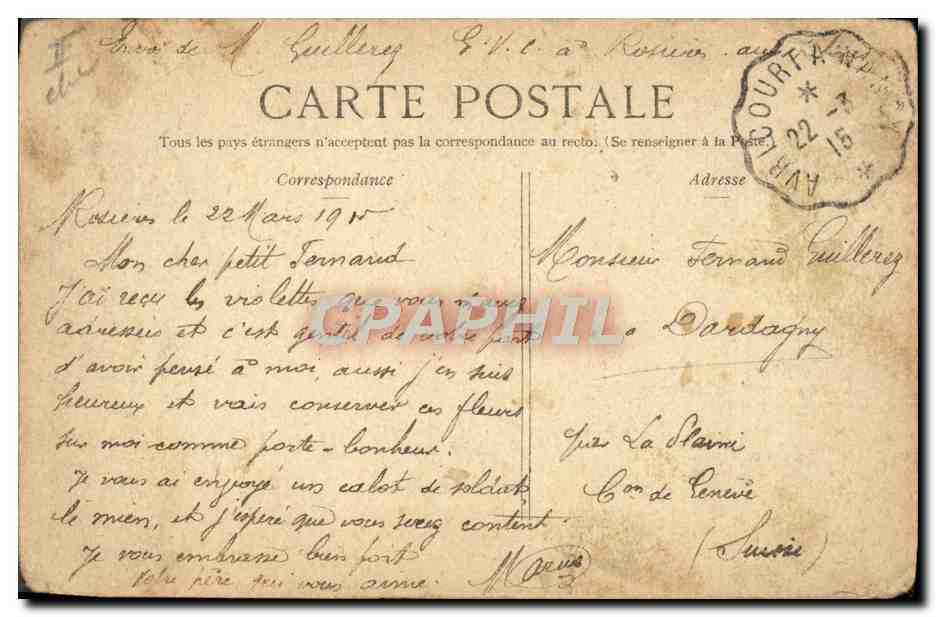 Envoi de M. Guillerez G.V.C. à Rosières aux
CARTE POSTALE
Tous les pays étrangers n'acceptent pas la correspondance au recto. (Se renseigner à la Poste.)
AVRICOURT A NANCY
22 -3
15
Correspondance
Rosières le 22 Mars 1915
Mon cher petit Fernand
J'ai reçu les violettes que vous m'avez
adressées et c'est gentil de votre part
d'avoir pensé à moi, aussi j'en suis
heureux et vais conserver ces fleurs
sur moi comme porte-bonheur.
Je vous ai envoyé un calot de soldat
le mien, et j'espère que vous serez content.
Je vous embrasse bien fort
Votre père qui vous aime.
Marius
Adresse
Monsieur Fernand Guillerez
à Dardagny
par La Plaine
Con de Genève
(Suisse)
CPAPHIL